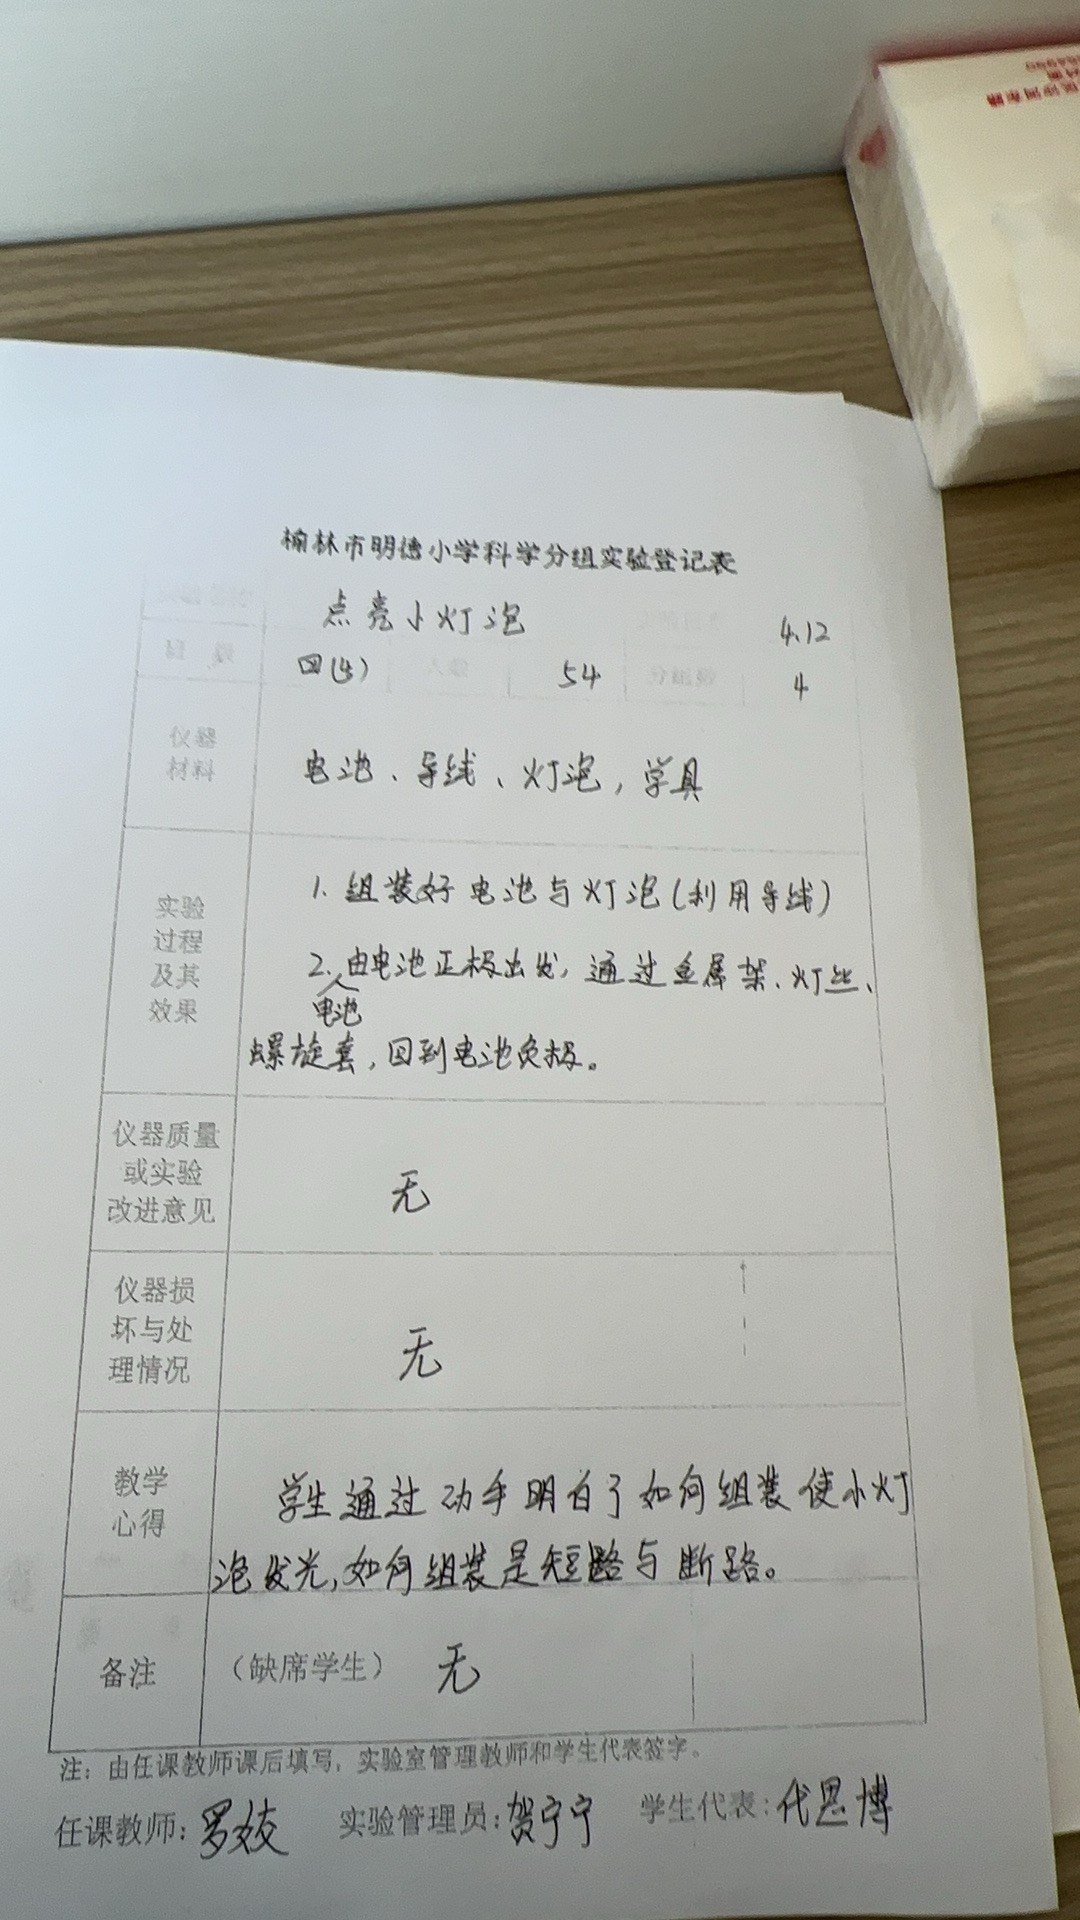 榆林市明德小学科学分组实验登记表
点亮小灯泡
4.12
四(4)
人数
54
分组数
4
仪器
材料
电池、导线、灯泡，学具
实验
过程
及其
效果
1. 组装好电池与灯泡(利用导线)
2. 由电池正极出发，通过金属架、灯丝、
电池
螺旋套，回到电池负极。
仪器质量
或实验
改进意见
无
仪器损
坏与处
理情况
无
教学
心得
学生通过动手明白了如何组装使小灯
泡发光，如何组装是短路与断路。
备注
（缺席学生） 无
注：由任课教师课后填写，实验室管理教师和学生代表签字。
任课教师: 罗姣 实验管理员: 贺宁宁 学生代表: 代思博